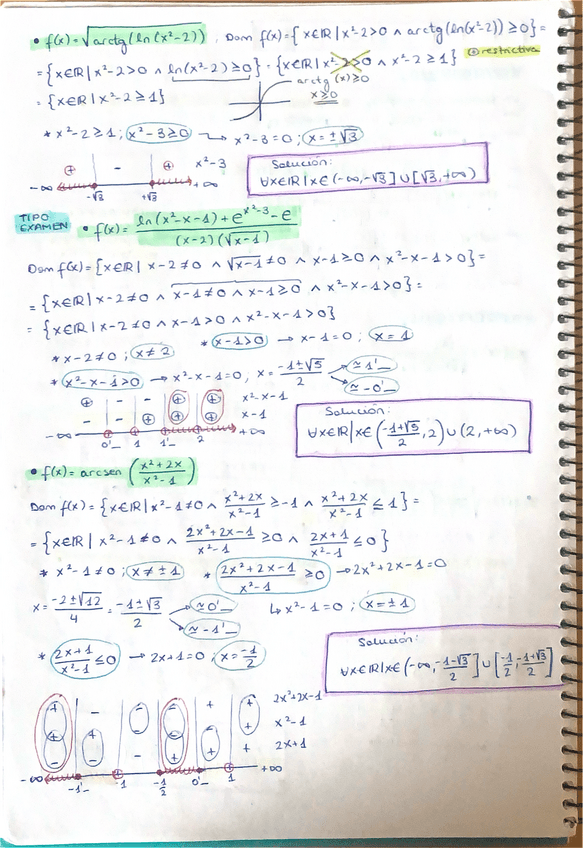 • f(x)=√(arctg(ln(x²-2))) ; Dom f(x)={x∈ℝ | x²-2>0 ∧ arctg(ln(x²-2))≥0}=
={x∈ℝ | x²-2>0 ∧ ln(x²-2)≥0}={x∈ℝ | x²-2>0 ∧ x²-2≥1} ⊕restrictiva
={x∈ℝ | x²-2≥1}
arctg(x)≥0
x≥0
* x²-2≥1 ; x²-3≥0 → x²-3=0 ; x=±√3
⊕ - ⊕ x²-3
-∞ -√3 +√3 +∞
Solución:
∀x∈ℝ | x∈(-∞,-√3]∪[√3,+∞)
TIPO EXAMEN
• f(x)= (ln(x²-x-1)+e^(x²-3)-e)/((x-2)(√(x-1)))
Dom f(x)={x∈ℝ | x-2≠0 ∧ √(x-1)≠0 ∧ x-1≥0 ∧ x²-x-1>0}=
={x∈ℝ | x-2≠0 ∧ x-1≠0 ∧ x-1≥0 ∧ x²-x-1>0}=
={x∈ℝ | x-2≠0 ∧ x-1>0 ∧ x²-x-1>0}
* x-2≠0 ; x≠2 * x-1>0 → x-1=0 ; x=1
* x²-x-1>0 → x²-x-1=0, x=(-1±√5)/2 ≃1'_ ≃-0'_
⊕ - - ⊕ ⊕ x²-x-1
- - ⊕ ⊕ ⊕ x-1
-∞ 0'_ 1 1'_ 2 +∞
Solución:
∀x∈ℝ | x∈((-1+√5)/2, 2)∪(2,+∞)
• f(x)= arcsen((x²+2x)/(x²-1))
Dom f(x)={x∈ℝ | x²-1≠0 ∧ (x²+2x)/(x²-1)≥-1 ∧ (x²+2x)/(x²-1)≤1}=
={x∈ℝ | x²-1≠0 ∧ (2x²+2x-1)/(x²-1)≥0 ∧ (2x+1)/(x²-1)≤0}
* x²-1≠0 ; x≠±1 * (2x²+2x-1)/(x²-1)≥0 → 2x²+2x-1=0
x=(-2±√12)/4=(-1±√3)/2 ≃0'_ ≃-1'_ ↳ x²-1=0 ; x=±1
* (2x+1)/(x²-1)≤0 → 2x+1=0 ; x=-1/2
Solución:
∀x∈ℝ | x∈(-∞,(-1-√3)/2]∪[-1/2,(-1+√3)/2]
+ - - - + + 2x²+2x-1
+ + - - - + x²-1
- - - + + + 2x+1
-∞ -1'_ -1 -1/2 0'_ 1 +∞